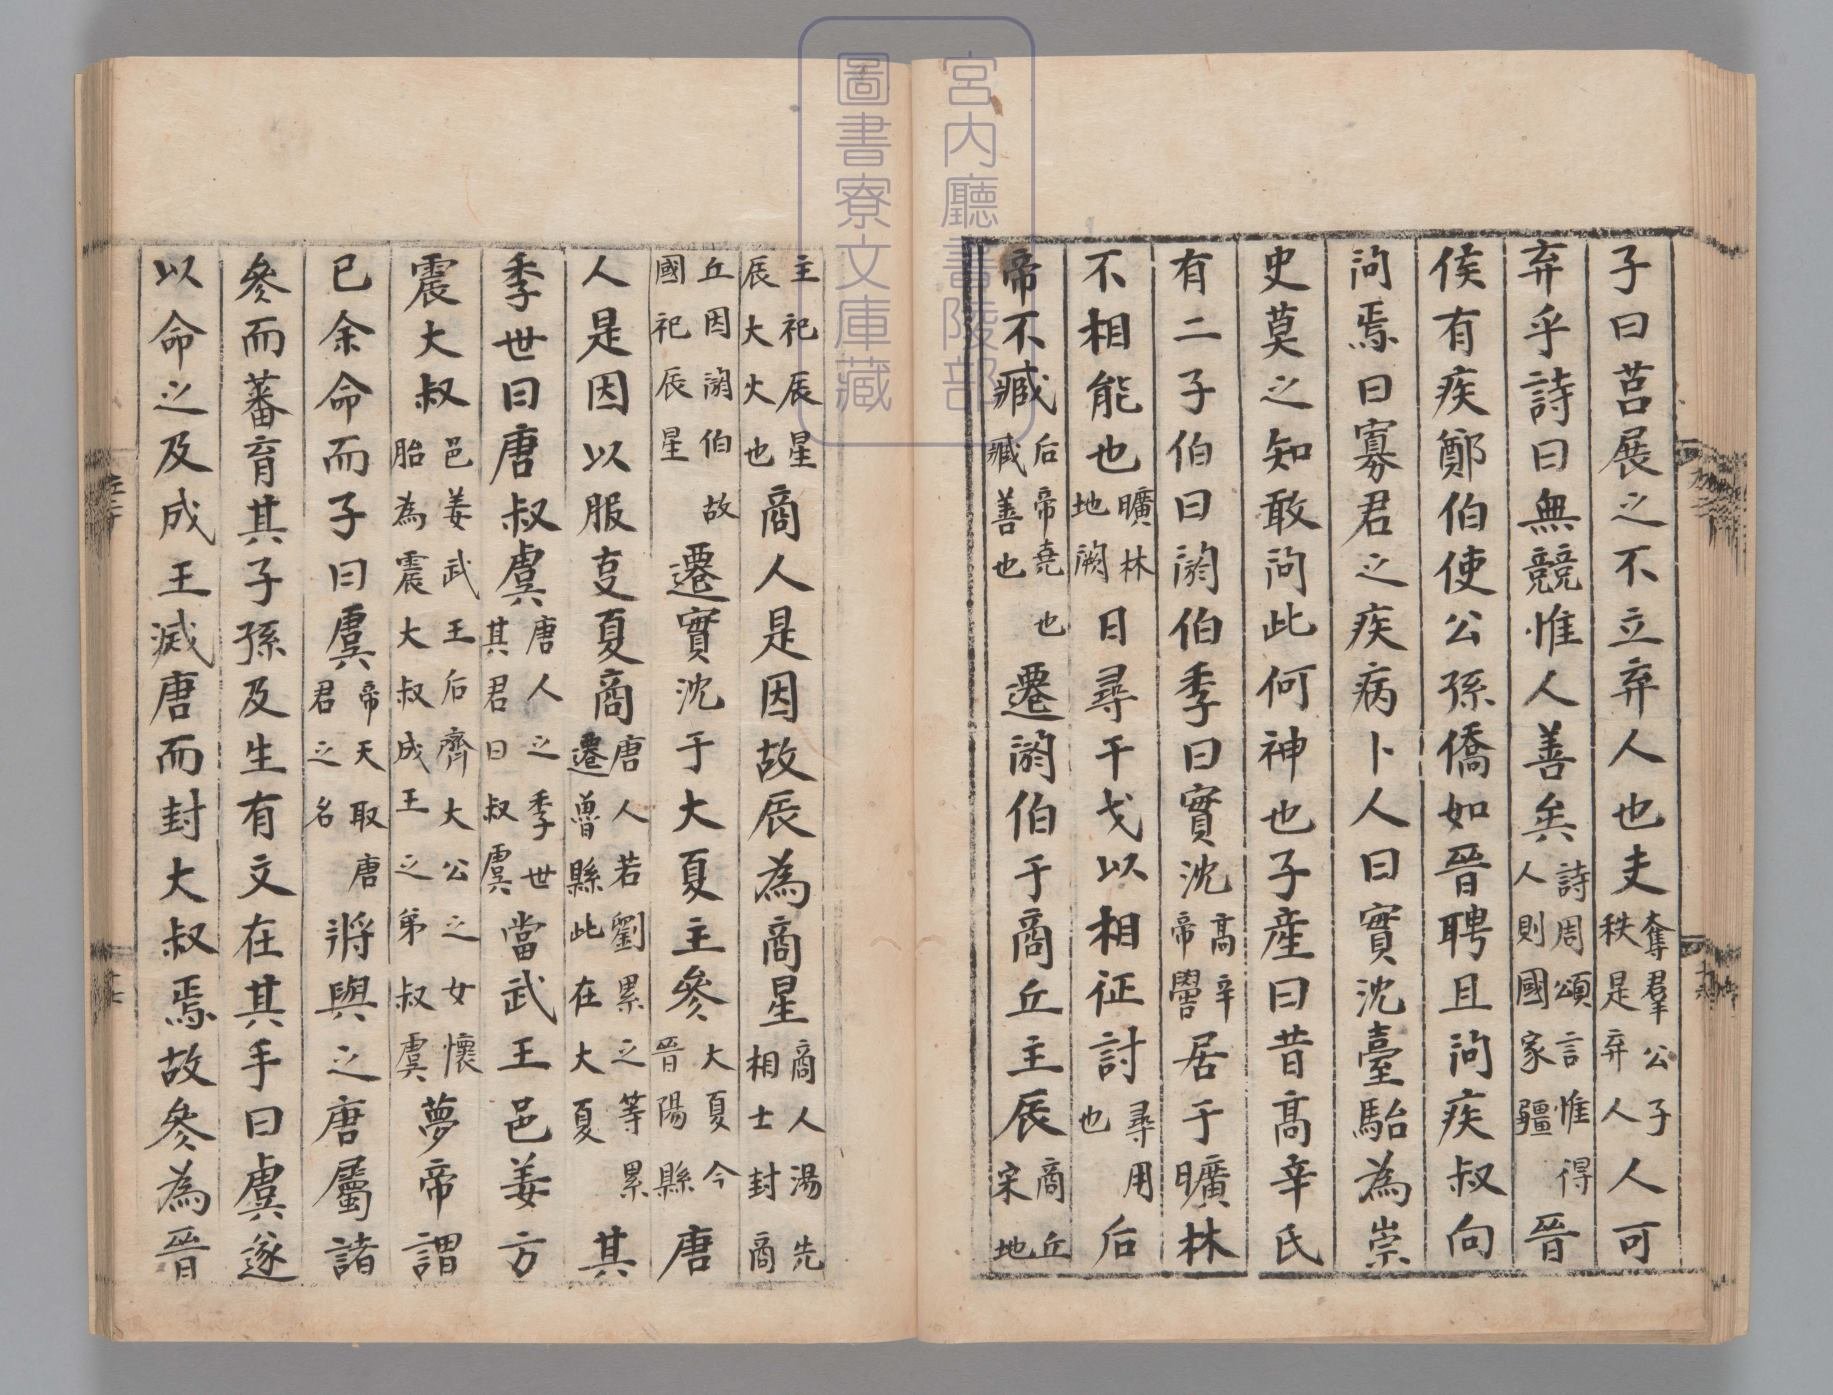 子曰莒展之不立弃人也夫奪羣公子秩是弃人人可
弃乎詩曰無競惟人善矣詩周頌言惟得人則國家彊晉
侯有疾鄭伯使公孫僑如晉聘且問疾叔向
問焉曰寡君之疾病卜人曰實沈臺駘為崇
史莫之知敢問此何神也子產曰昔高辛氏
有二子伯曰閼伯季曰實沈高辛帝嚳居于曠林
不相能也曠林地闕日尋干戈以相征討尋用也后
帝不臧后帝堯也臧善也遷閼伯于商丘主辰商丘宋地
主祀辰星辰大火也商人是因故辰為商星商人湯先相土封商
丘因閼伯故國祀辰星遷實沈于大夏主參大夏今晉陽縣唐
人是因以服事夏商唐人若劉累之等累遷魯縣此在大夏其
季世曰唐叔虞唐人之季世其君曰叔虞當武王邑姜方
震大叔邑姜武王后齊大公之女懷胎為震大叔成王之弟叔虞夢帝謂
已余命而子曰虞帝天取唐君之名將與之唐屬諸
參而蕃育其子孫及生有文在其手曰虞遂
以命之及成王滅唐而封大叔焉故參為晉
宮內廳書陵部
圖書寮文庫藏